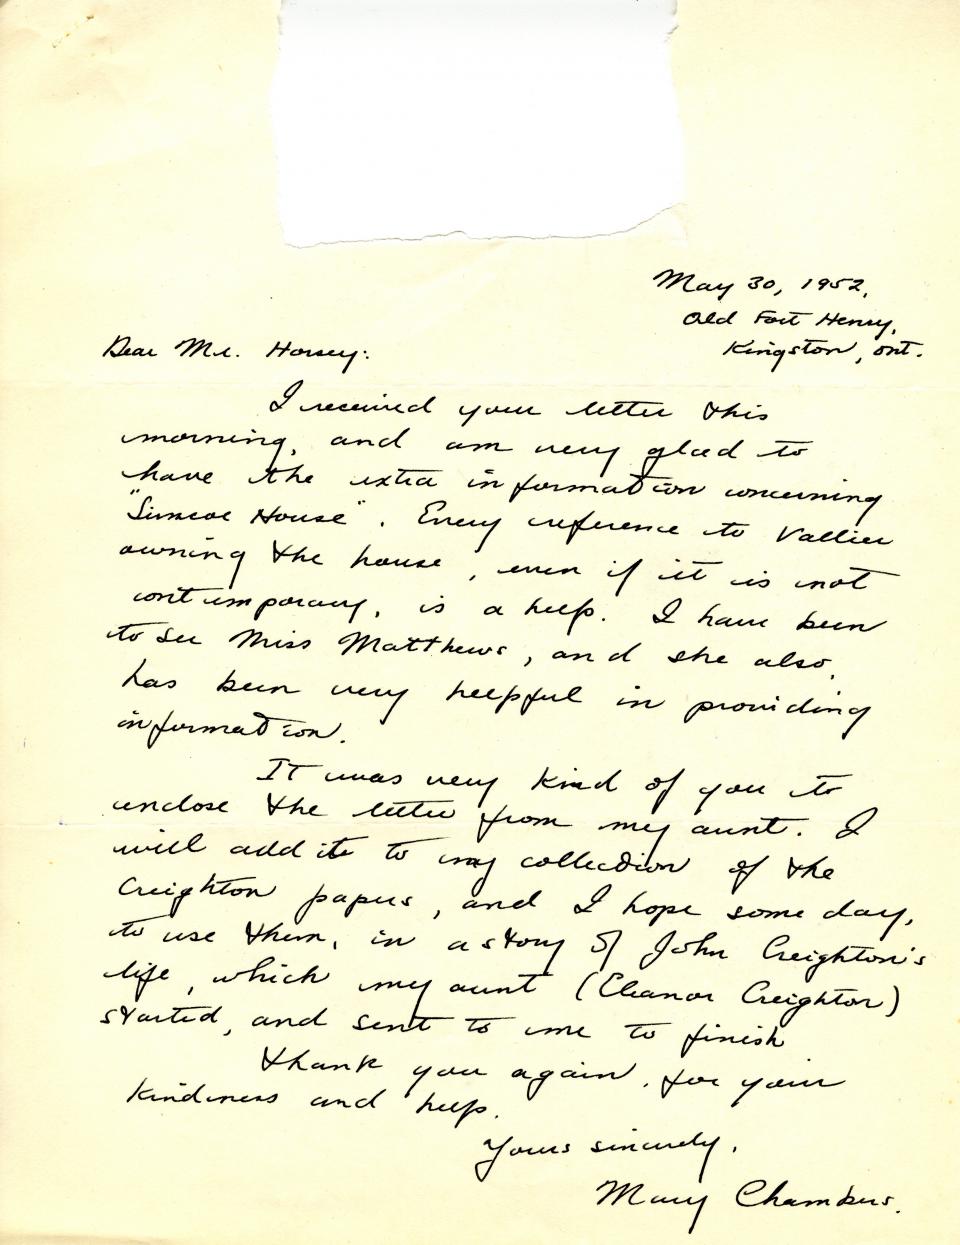 May 30, 1952.
Old Fort Henry,
Kingston, Ont.
Dear Mr. Horsey:
I received your letter this
morning, and am very glad to
have the extra information concerning
"Simcoe House". Every reference to Vallier
owning the house, even if it is not
contemporary, is a help. I have been
to see Miss Matthews, and she also,
has been very helpful in providing
information.
It was very kind of you to
enclose the letter from my aunt. I
will add it to my collection of the
Creighton papers, and I hope some day,
to use them, in a story of John Creighton's
life, which my aunt (Eleanor Creighton)
started, and sent to me to finish
Thank you again, for your
kindness and help.
Yours sincerely,
Mary Chambers.